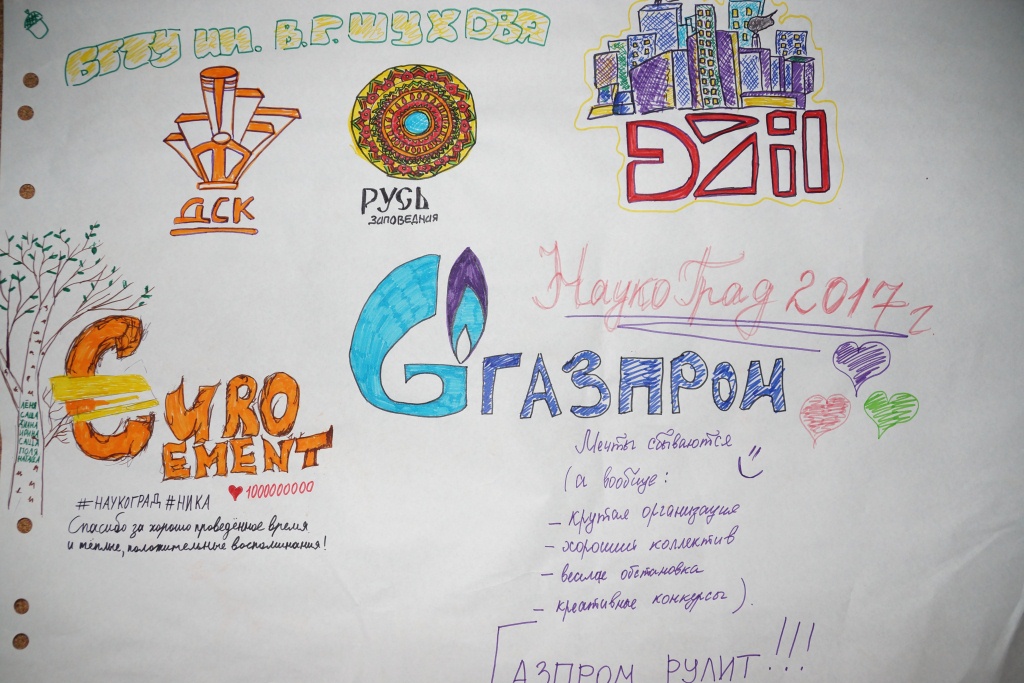 БГТУ им. В.Г. ШУХОВА
ДСК
РУСЬ
ЗАПОВЕДНАЯ
DZil
НаукоГрад 2017 г.
ГАЗПРОМ
Мечты сбываются
(а вообще:
- крутая организация
- хороший коллектив
- весёлая обстановка
- креативные конкурсы).
ГАЗПРОМ РУЛИТ!!!
EURO
CEMENT
1000000000
#НАУКОГРАД #НИКА
Спасибо за хорошо проведённое время
и тёплые, положительные воспоминания!
ЛЁНЯ
САША
ДИМА
ИРИНА
САША
ПОЛЯ
НАТАША